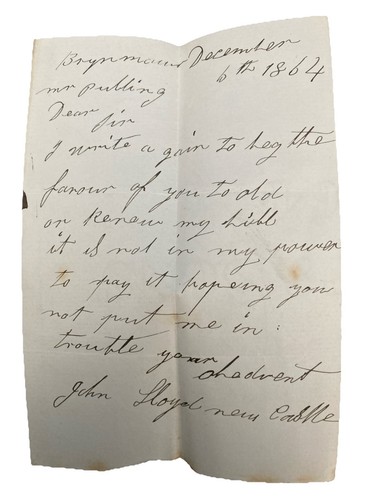 Brynmawr December
6th 1864
mr pulling
Dear
Sir
I write a gain to beg the
favour of you to old
or Renew my bill
it is not in my power
to pay it hopeing you
not put me in :
trouble your obadvent
John Lloyd new Castle